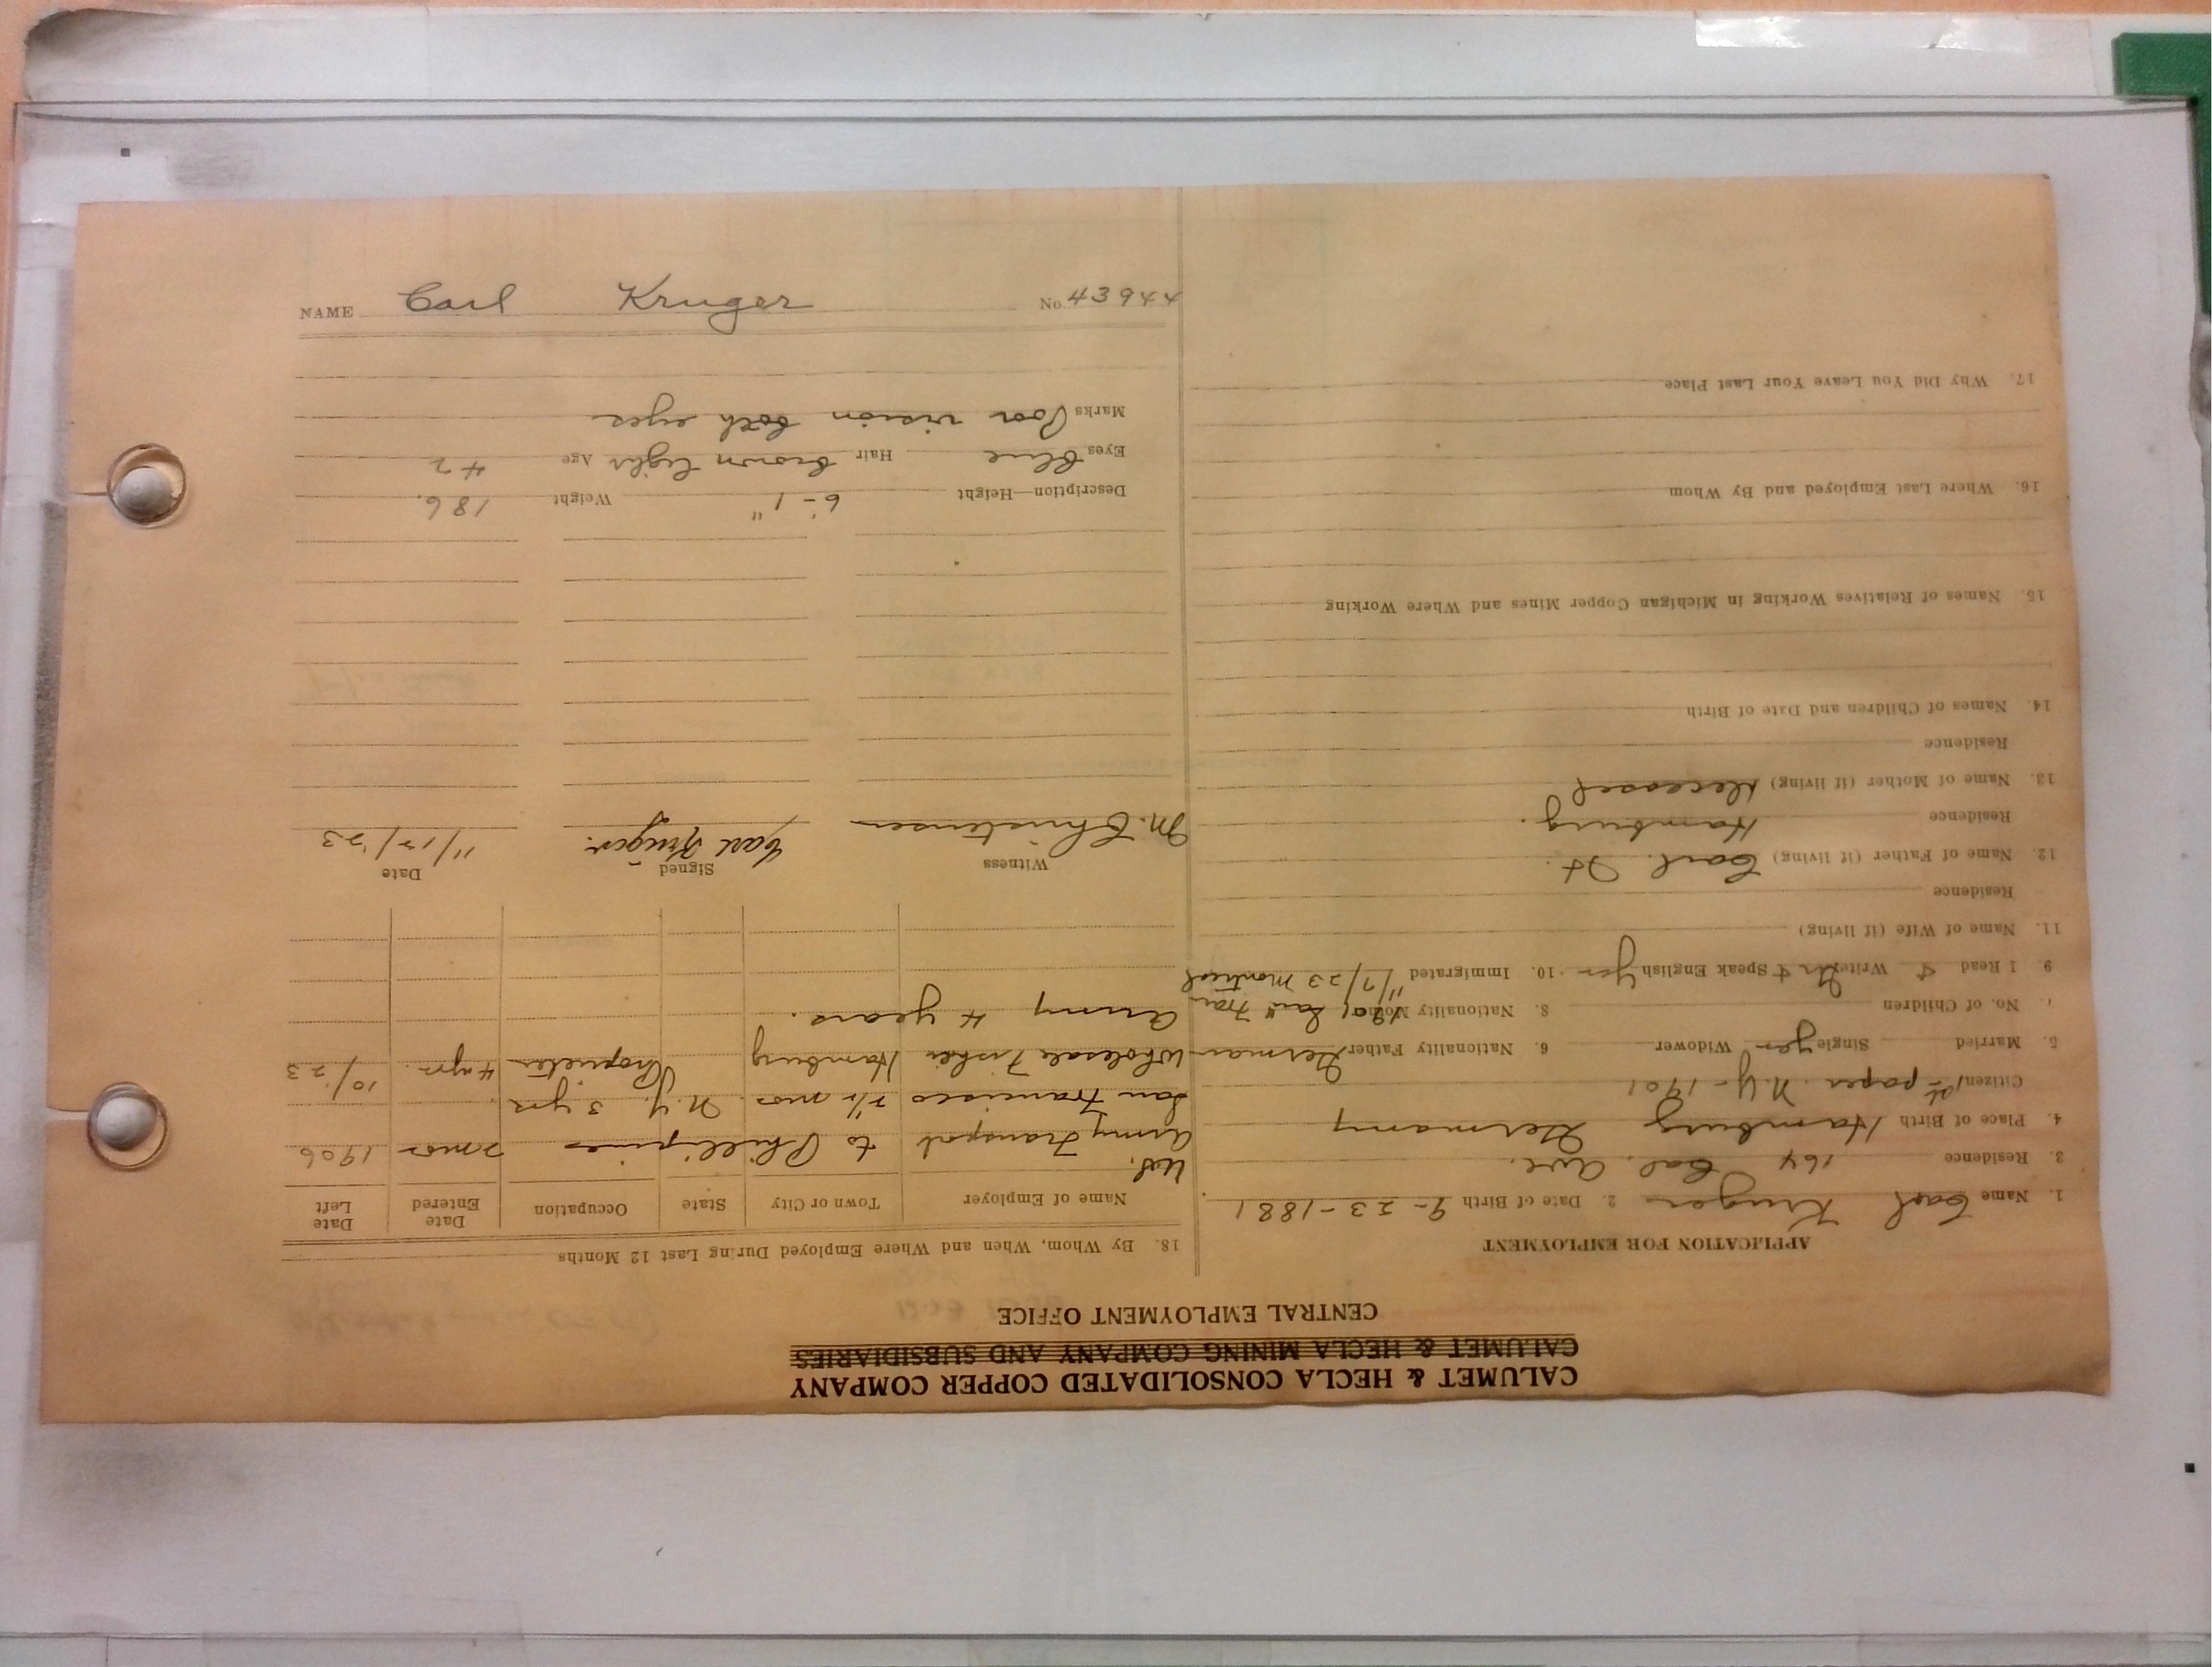 CALUMET & HECLA CONSOLIDATED COPPER COMPANY
CALUMET & HECLA MINING COMPANY AND SUBSIDIARIES
CENTRAL EMPLOYMENT OFFICE
APPLICATION FOR EMPLOYMENT
1. Name Carl Kruger 2. Date of Birth 9-23-1881
3. Residence 164 Cal. Ave.
4. Place of Birth Hamburg Germany
Citizen 1st paper N.Y-1901
5. Married Single yes Widower 6. Nationality Father German
7. No. of Children 8. Nationality Mother 1901 San Fran
9. I Read & Write & Speak English Yes 10. Immigrated 11/7/23 Montreal
11. Name of Wife (if living)
Residence
12. Name of Father (if living) Carl
Residence Hamburg.
13. Name of Mother (if living) deceased
Residence
14. Names of Children and Date of Birth
15. Names of Relatives Working in Michigan Copper Mines and Where Working
16. Where Last Employed and By Whom
17. Why Did You Leave Your Last Place
18. By Whom, When and Where Employed During Last 12 Months
Name of Employer Town or City State Occupation Date Entered Date Left
U.S.
Army Transport to Phillipines 2 mos 1906
San Francisco mos. N.Y. 3 yrs
Wholesale Fisher Hamburg Proprietor 4 yrs. 10/23
Army 4 years.
Witness Signed Date
M. Christensen Carl Krüger. 11/12/23
Description—Height 6-1" Weight 186.
Eyes Blue Hair Brown light Age 42
Marks Poor vision both eyes
NAME Carl Kruger No. 43944